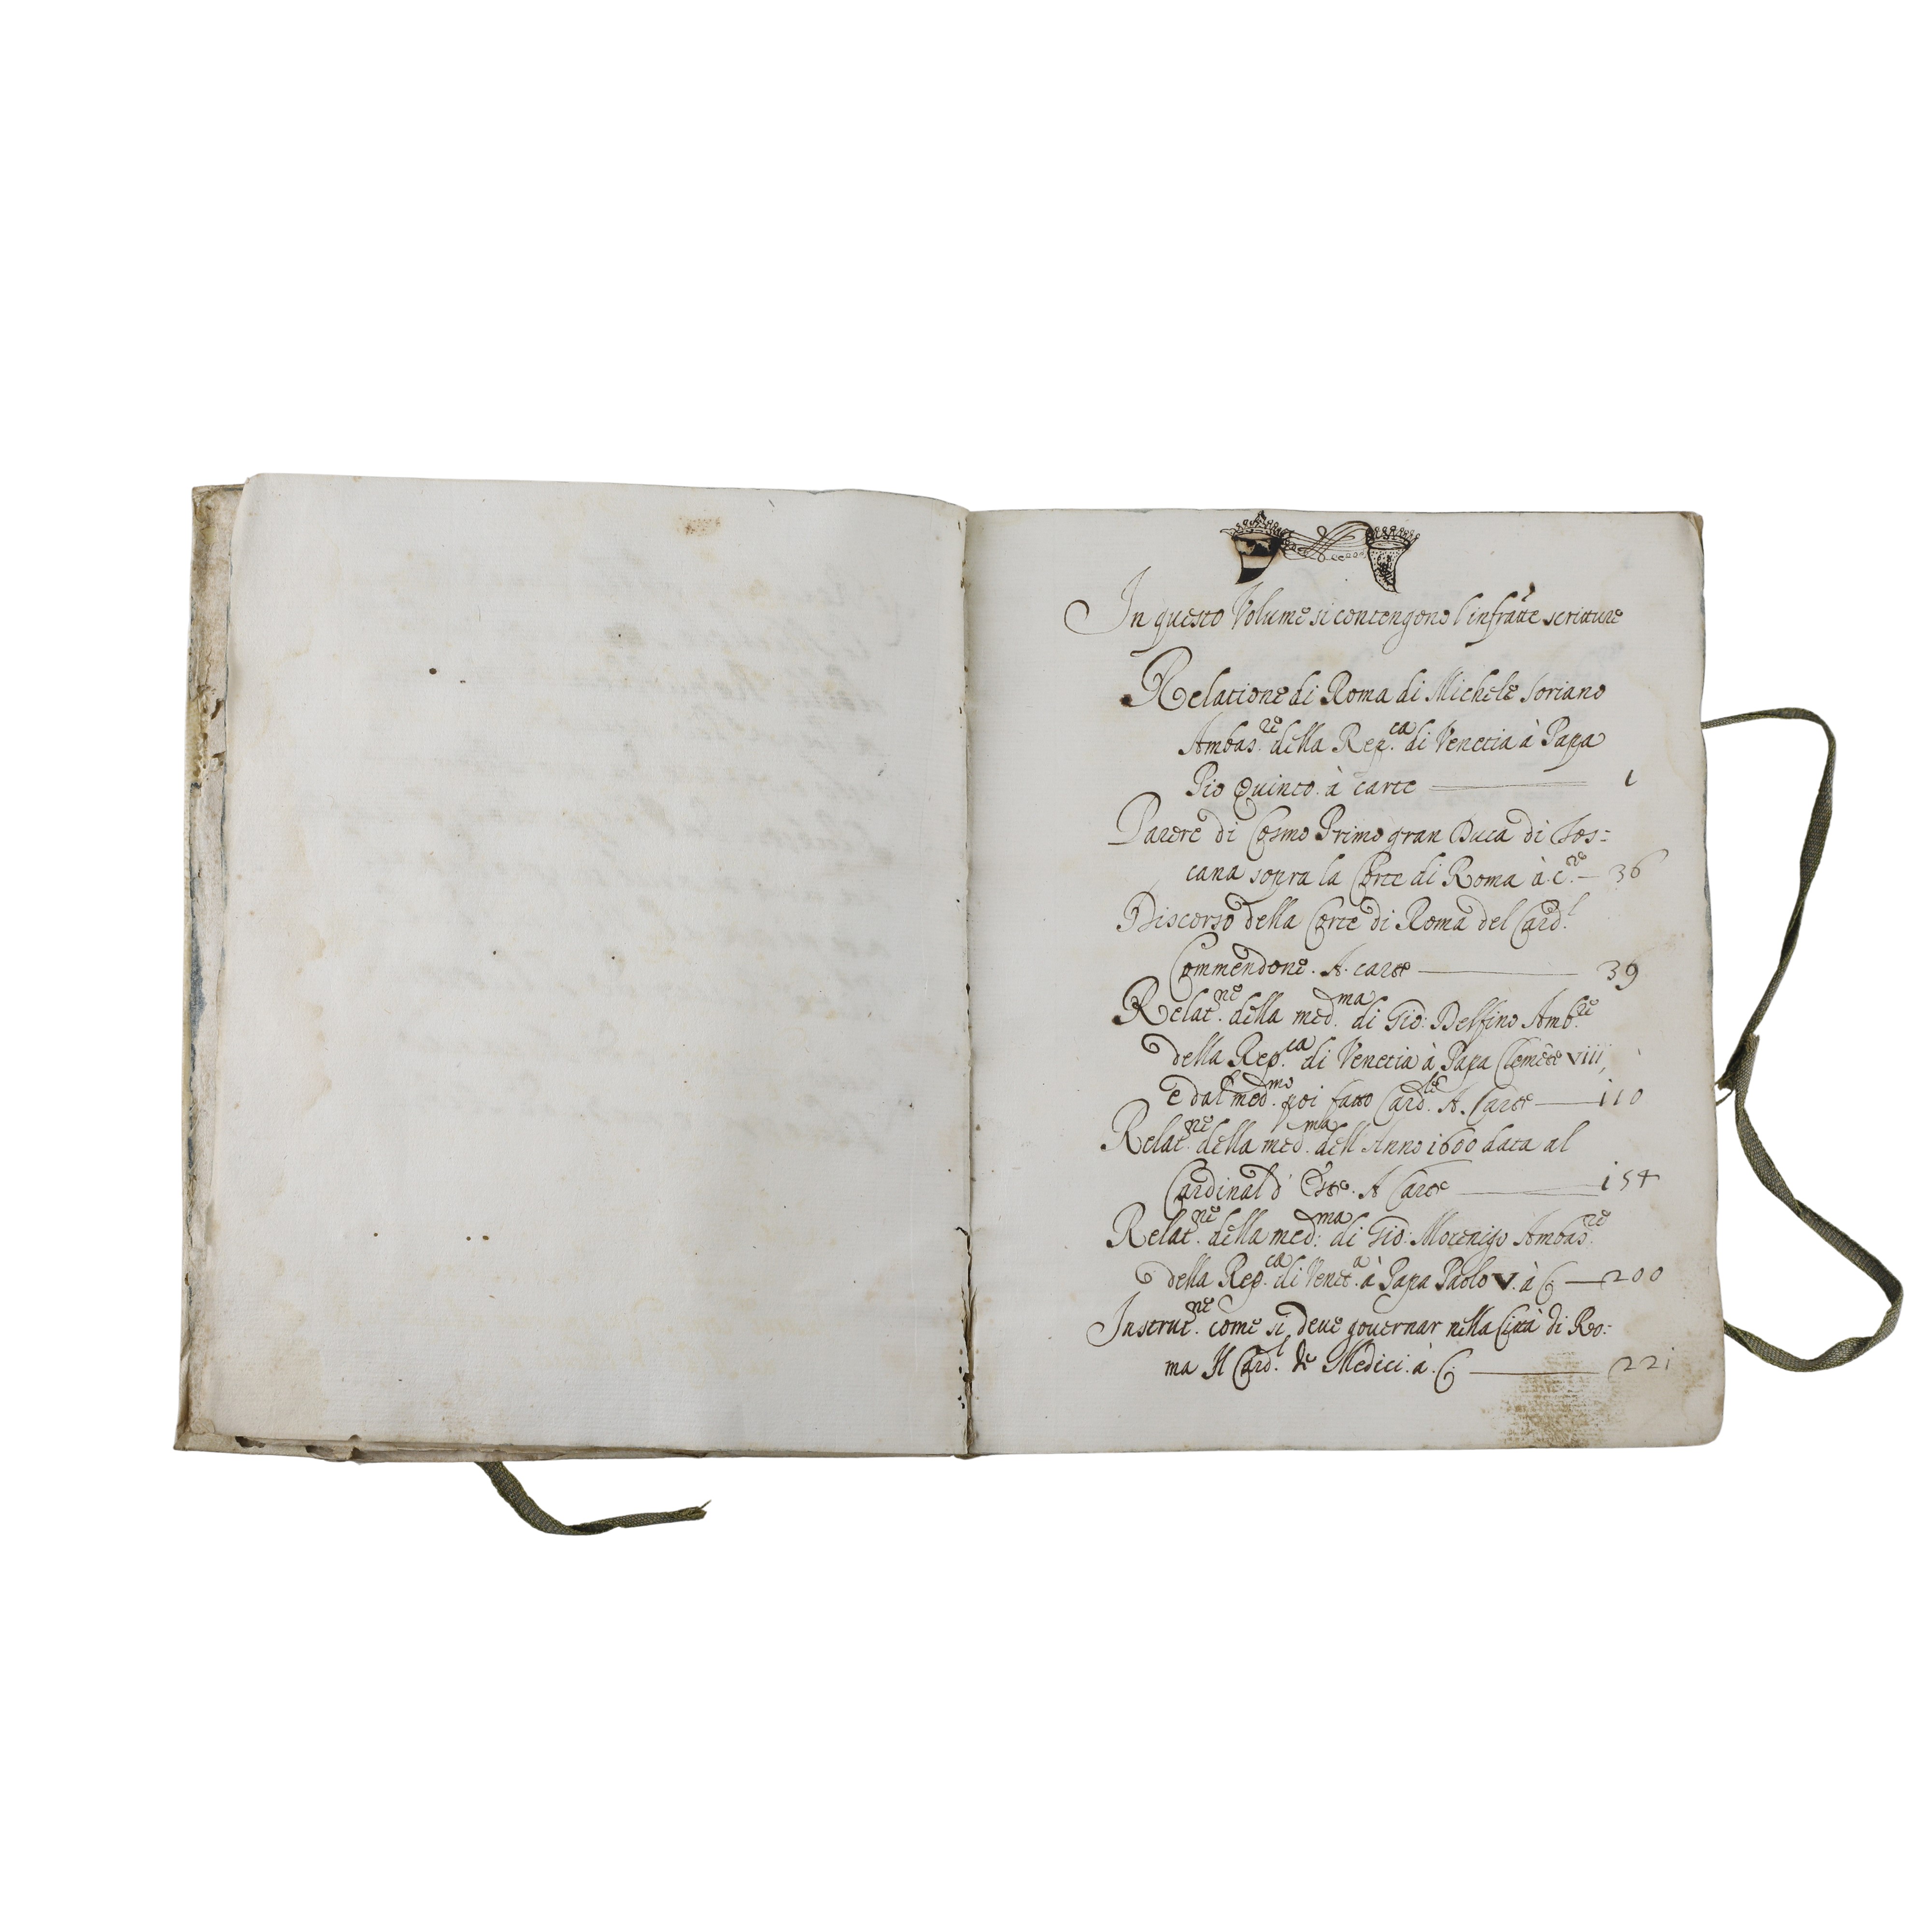 In questo Volume si contengono l'infratte scritture
Relatione di Roma di Michele Soriano
Ambas.re della Rep.ca di Venetia à Papa
Pio Quinto. à carte — 1
Parere di Cosmo Primo gran Duca di Tos=
cana sopra la Corte di Roma à c.re — 36
Discorso della Corte di Roma del Card.l
Commendone. A. carte — 39
Relat.ne della med.ma di Gio: Delfino Amb.re
della Rep.ca di Venetia à Papa Clemẽte VIII,
e dal med.mo poi fatto Card.le A. Carte — 110
Relat.ne della med.ma dell'Anno 1600 data al
Cardinal d'Este. A Carte — 154
Relat.ne della med:ma di Gio: Mocenigo Ambas.re
della Rep.ca di Venet.a à Papa Paolo V. à C. — 200
Instrut.ne come si deve governar nella Città di Ro=
ma Il Card.l de Medici. à. C. — 221